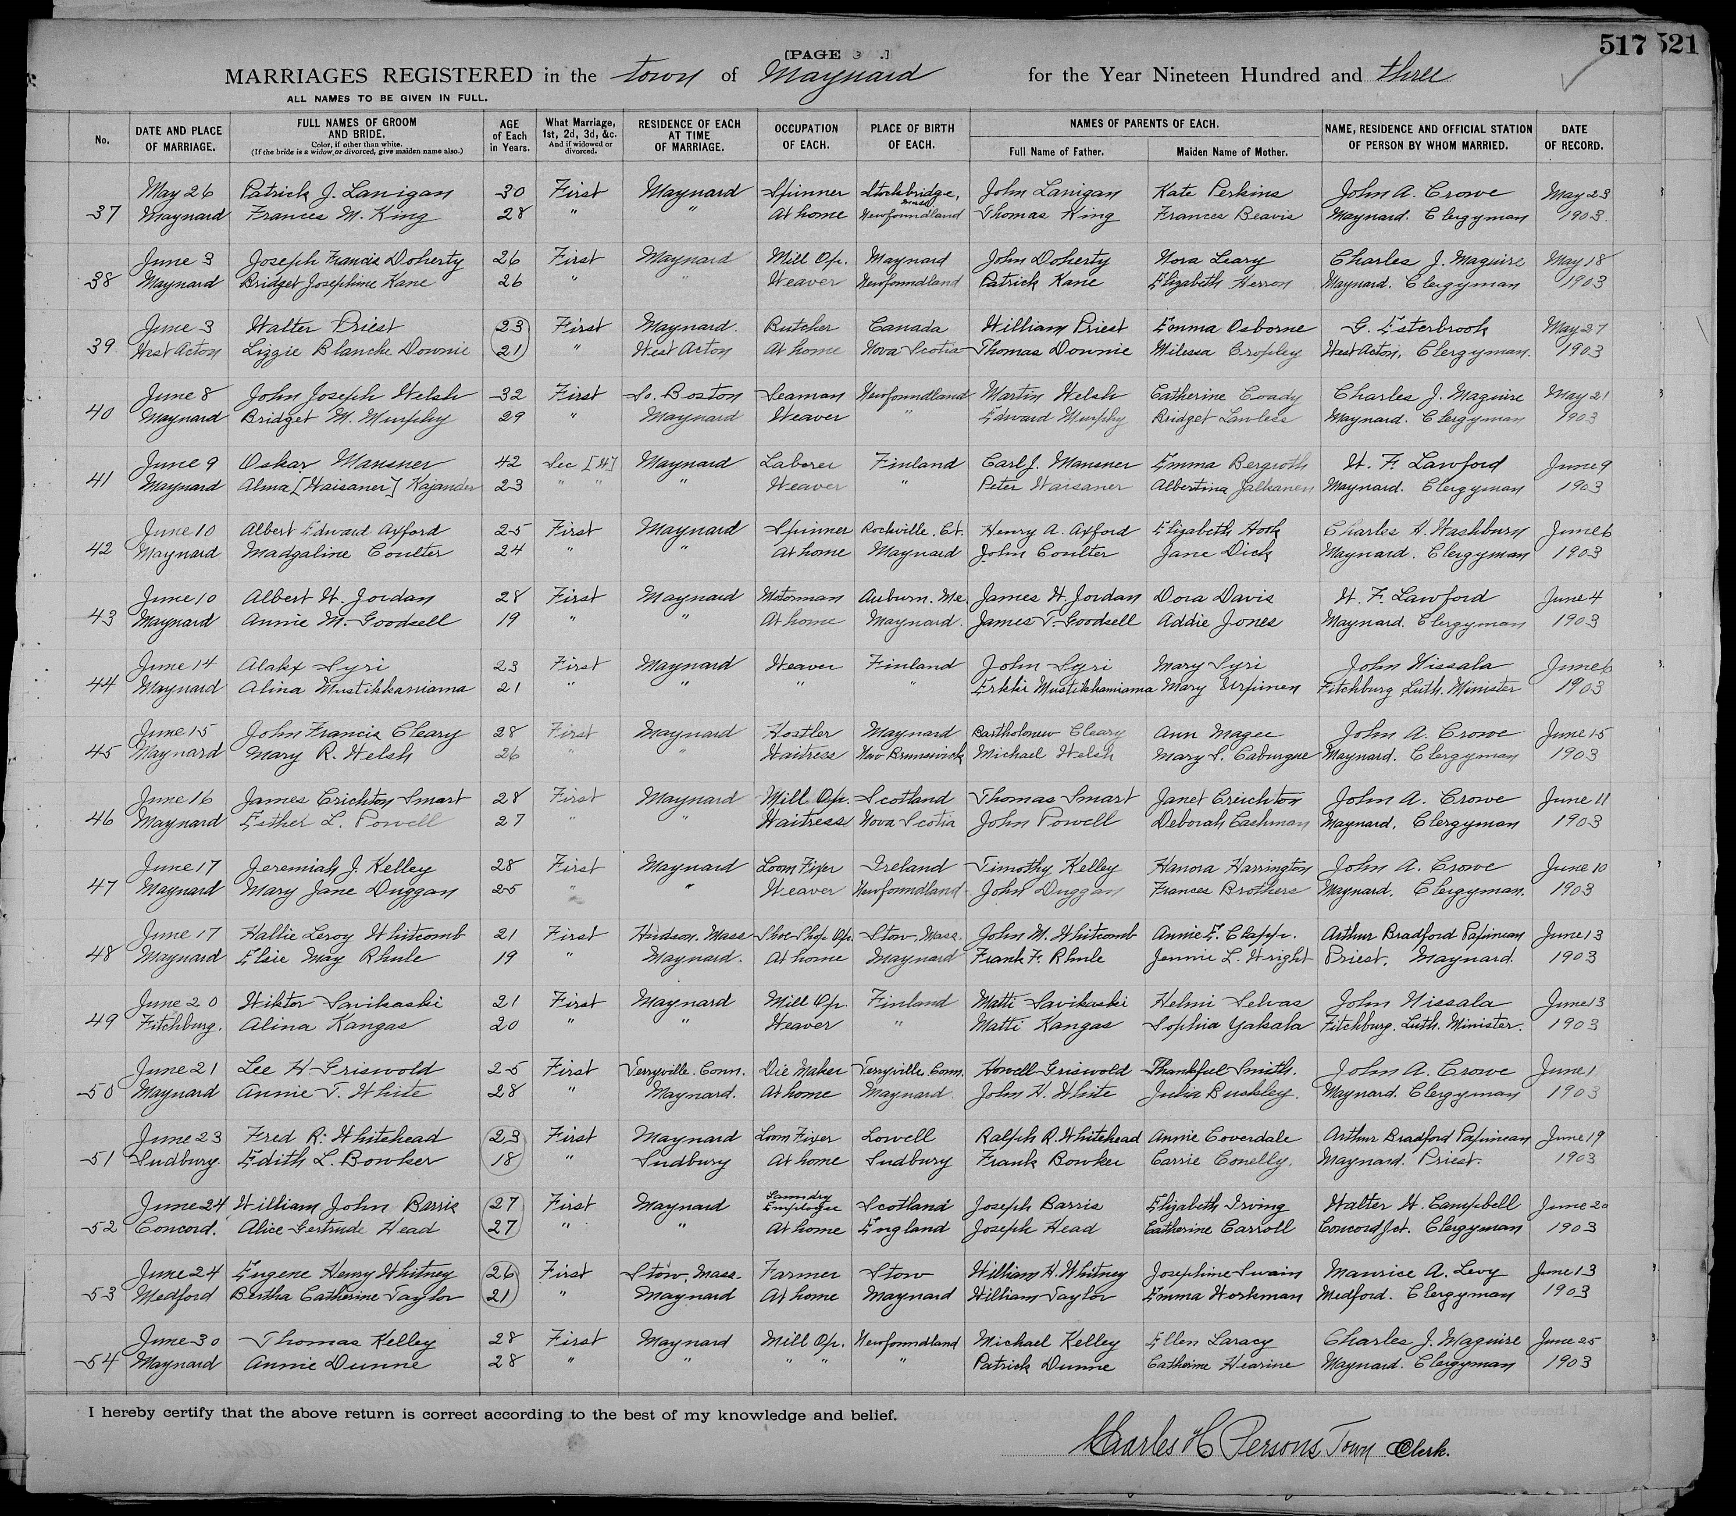 [PAGE 3 .]
517 521
MARRIAGES REGISTERED in the town of Maynard for the Year Nineteen Hundred and three
ALL NAMES TO BE GIVEN IN FULL.
No. DATE AND PLACE OF MARRIAGE. FULL NAMES OF GROOM AND BRIDE. Color, if other than white. (If the bride is a widow or divorced, give maiden name also.) AGE of Each in Years. What Marriage, 1st, 2d, 3d, &c. And if widowed or divorced. RESIDENCE OF EACH AT TIME OF MARRIAGE. OCCUPATION OF EACH. PLACE OF BIRTH OF EACH. NAMES OF PARENTS OF EACH. Full Name of Father. Maiden Name of Mother. NAME, RESIDENCE AND OFFICIAL STATION OF PERSON BY WHOM MARRIED. DATE OF RECORD.
May 26 Patrick J. Lanigan 30 First Maynard Spinner Stockbridge, Mass. John Lanigan Kate Perkins John A. Crowe May 23
37 Maynard Frances M. King 28 " " At home Newfoundland Thomas King Frances Beavis Maynard. Clergyman 1903.
June 3 Joseph Francis Doherty 26 First Maynard Mill Op. Maynard John Doherty Nora Leary Charles J. Maguire May 18
38 Maynard Bridget Josephine Kane 26 " " Weaver Newfoundland Patrick Kane Elizabeth Herron Maynard. Clergyman 1903
June 3 Walter Priest 23 First Maynard. Butcher Canada William Priest Emma Osborne G. Esterbrook May 27
39 West Acton Lizzie Blanche Downie 21 " West Acton At home Nova Scotia Thomas Downie Milessa Cropley West Acton, Clergyman. 1903
June 8 John Joseph Welsh 32 First So. Boston Seaman Newfoundland Martin Welsh Catherine Coady Charles J. Maguire May 21
40 Maynard Bridget M. Murphy 29 " Maynard Weaver " Edward Murphy Bridget Lawless Maynard. Clergyman 1903
June 9 Oskar Mansner 42 Sec [W] Maynard Laborer Finland Carl J. Mansner Emma Bergroth W. F. Lawford June 9
41 Maynard Alma [Waisaner] Kajander 23 " " " Weaver " Peter Waisaner Albertina Jalkanen Maynard. Clergyman 1903
June 10 Albert Edward Axford 25 First Maynard Spinner Rockville. Ct. Henry A. Axford Elizabeth Hook Charles H. Washburn June 6
42 Maynard Madgaline Coulter 24 " " At home Maynard John Coulter Jane Dick Maynard. Clergyman 1903
June 10 Albert W. Jordan 28 First Maynard Motorman Auburn. Me. James W. Jordan Dora Davis W. F. Lawford June 4
43 Maynard Annie M. Goodsell 19 " " At home Maynard. James T. Goodsell Addie Jones Maynard. Clergyman 1903.
June 14 Alakx Syri 23 First Maynard Weaver Finland John Syri Mary Syri John Wissala June 6
44 Maynard Alina Mustikkaniama 21 " " " " Erkkir Mustikkaniama Mary Urpinen Fitchburg Luth. Minister 1903
June 15 John Francis Cleary 28 First Maynard Hostler Maynard Bartholomew Cleary Ann Magee John A. Crowe June 15
45 Maynard Mary R. Welsh 26 " " Waitress New Brunswick Michael Welsh Mary S. Caburgue Maynard. Clergyman 1903
June 16 James Crichton Smart 28 First Maynard Mill Op. Scotland Thomas Smart Janet Creichton John A. Crowe June 11
46 Maynard Esther L. Powell 27 " " Waitress Nova Scotia John Powell Deborah Cashman Maynard. Clergyman 1903
June 17 Jeremiah J. Kelley 28 First Maynard Loom Fixer Ireland Timothy Kelley Hanora Harrington John A. Crowe June 10
47 Maynard Mary Jane Duggan 25 " " Weaver Newfoundland John Duggan Frances Brothers Maynard. Clergyman. 1903
June 17 Hallie Leroy Whitcomb 21 First Hudson. Mass Shoe Shop Op. Stow, Mass. John M. Whitcomb Annie E. Clapp. Arthur Bradford Papineau June 13
48 Maynard Elsie May Rhule 19 " Maynard. At home Maynard Frank F. Rhule Jennie L. Wright Priest, Maynard. 1903
June 20 Wiktor Savikaski 21 First Maynard Mill Op. Finland Matti Savikaski Helmi Selvas John Wissala June 13
49 Fitchburg. Alina Kangas 20 " " Weaver " Matti Kangas Sophia Yakala Fitchburg. Luth. Minister. 1903
June 21 Lee H. Griswold 25 First Terryville. Conn. Die Maker Terryville. Conn. Howell Griswold Thankful Smith. John A. Crowe June 1
50 Maynard Annie T. White 28 " Maynard. At home Maynard John H. White Julia Buckley. Maynard. Clergyman 1903
June 23 Fred R. Whitehead 23 First Maynard Loom Fixer Lowell Ralph R. Whitehead Annie Coverdale Arthur Bradford Papineau June 19
51 Sudbury. Edith L. Bowker 18 " Sudbury At home Sudbury Frank Bowker Carrie Conelly. Maynard. Priest. 1903
June 24 William John Barris 27 First Maynard Laundry Employee Scotland Joseph Barris Elizabeth Irving Walter H. Campbell June 20
52 Concord. Alice Gertrude Head 27 " " At home England Joseph Head Catherine Carroll Concord Jct. Clergyman 1903
June 24 Eugene Henry Whitney 26 First Stow, Mass. Farmer Stow William H. Whitney Josephine Swain Maurice A. Levy June 13
53 Medford Bertha Catherine Taylor 21 " Maynard At home Maynard William Taylor Emma Workman Medford. Clergyman 1903
June 30 Thomas Kelley 28 First Maynard Mill Op. Newfoundland Michael Kelley Ellen Laracy Charles J. Maguire June 25
54 Maynard Annie Dunne 28 " " " " " Patrick Dunne Catherine Hearine Maynard. Clergyman 1903
I hereby certify that the above return is correct according to the best of my knowledge and belief.
Charles H Persons Town Clerk.